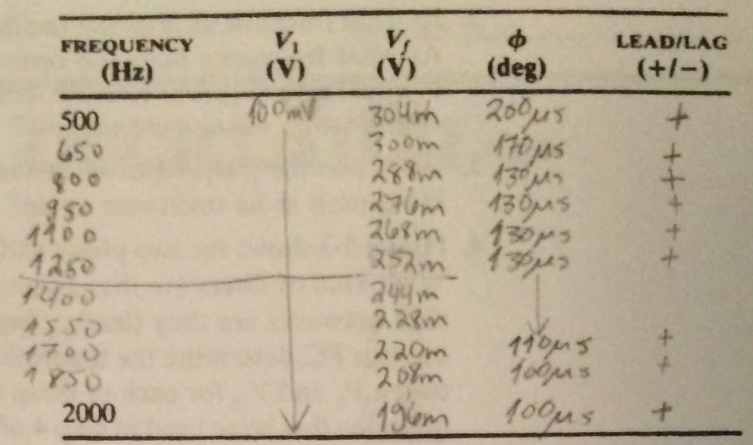 FREQUENCY (Hz) V1 (V) Vf (V) ϕ (deg) LEAD/LAG (+/−)
500 100mV 304m 200µs +
650 300m 170µs +
800 288m 130µs +
950 276m 130µs +
1100 268m 130µs +
1250 252m 130µs +
1400 244m
1550 228m
1700 220m 110µs +
1850 208m 100µs +
2000 196m 100µs +